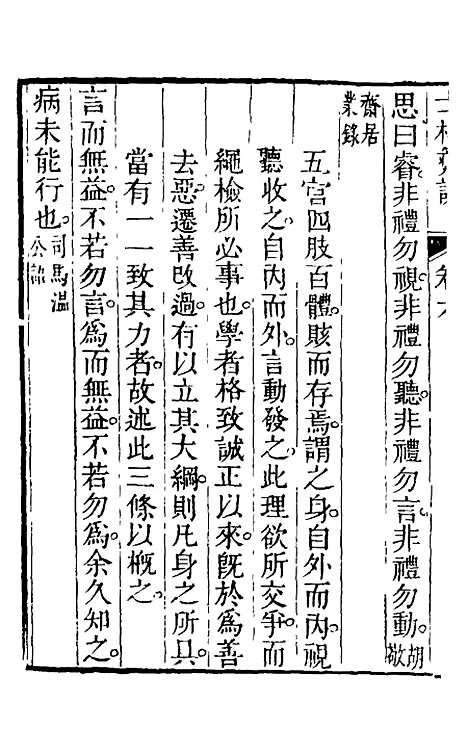 思曰睿非禮勿視非禮勿聽非禮勿言非禮勿動。胡敬
齋居業錄
五官四肢百體賅而存焉。謂之身自外而內。視
聽收之。自內而外。言動發之。此理欲所交爭。而
繩檢所必事也。學者格致誠正以來。旣於爲善
去惡。遷善改過。有以立其大綱。則凡身之所具。
當有一一致其力者。故述此三條以槪之。
言而無益。不若勿言。爲而無益。不若勿爲。余久知之。
病未能行也。司馬溫公語